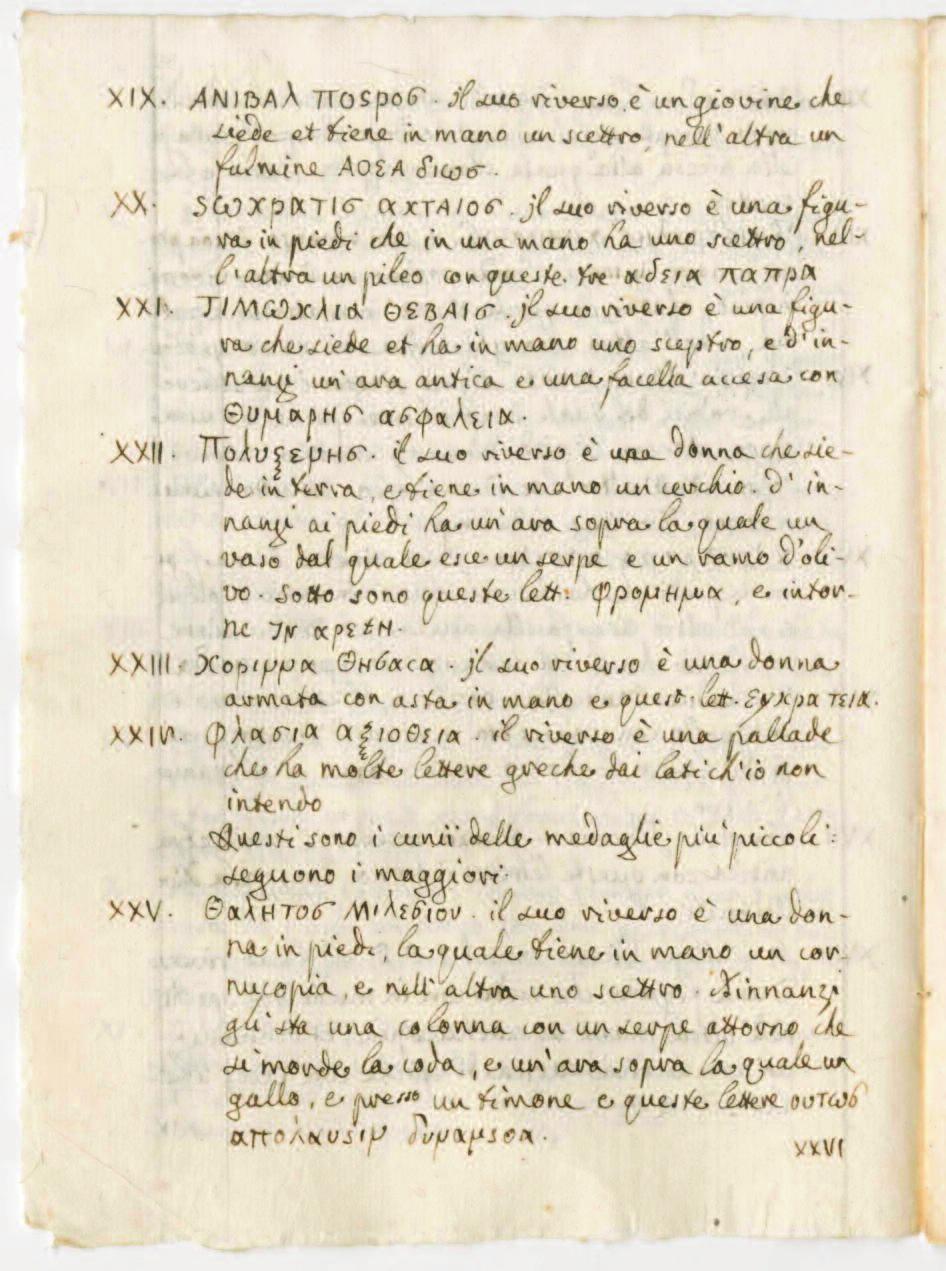 XIX. ΑΝΙΒΑλ ΠΟSΡΟσ. il suo riverso è un giovine che
siede et tiene in mano un scettro, nell'altra un
fulmine ΑΟΣΑ διωσ.
XX. SωχρατΙσ αχταιοσ. jl suo riverso è una figu-
ra in piedi che in una mano ha uno scettro, nel-
l'altra un pileo con queste tre αδεια παπρα
XXI. ΤΙΜωχλια ΘΕΒΑΙσ. jl suo riverso è una figu-
ra che siede et ha in mano uno sceptro, e d'in-
nanzi un'ara antica e una facella accesa con
Θυμαρησ ασφαλεια.
XXII. Πολυξεμησ. il suo riverso è una donna che sie-
de in terra, e tiene in mano un cerchio. d'in-
nanzi ai piedi ha un'ara sopra la quale un
vaso dal quale esce un serpe e un ramo d'oli-
vo. Sotto sono queste lett: φρομημα, e intor-
no ΙΝ αρετη.
XXIII. Χοριμμα Θησασα. jl suo riverso è una donna
armata con asta in mano e quest. lett. Εγχρατεια.
XXIV. Φλασια αξιοθεια. il riverso è una pallade
che ha molte lettere greche dai lati ch'iò non
intendo
Questi sono i cunii delle medaglie più piccoli:
seguono i maggiori.
XXV. Θαλητοσ Μιλεσιου. il suo riverso è una don-
na in piedi, la quale tiene in mano un cor-
nucopia, e nell'altra uno scettro. Dinnanzi
gli sta una colonna con un serpe attorno che
si morde la coda, e un'ara sopra la quale un
gallo, e presso un timone e queste lettere ουτωσ
απολαυsιμ δυμαμsοα.
XXVI